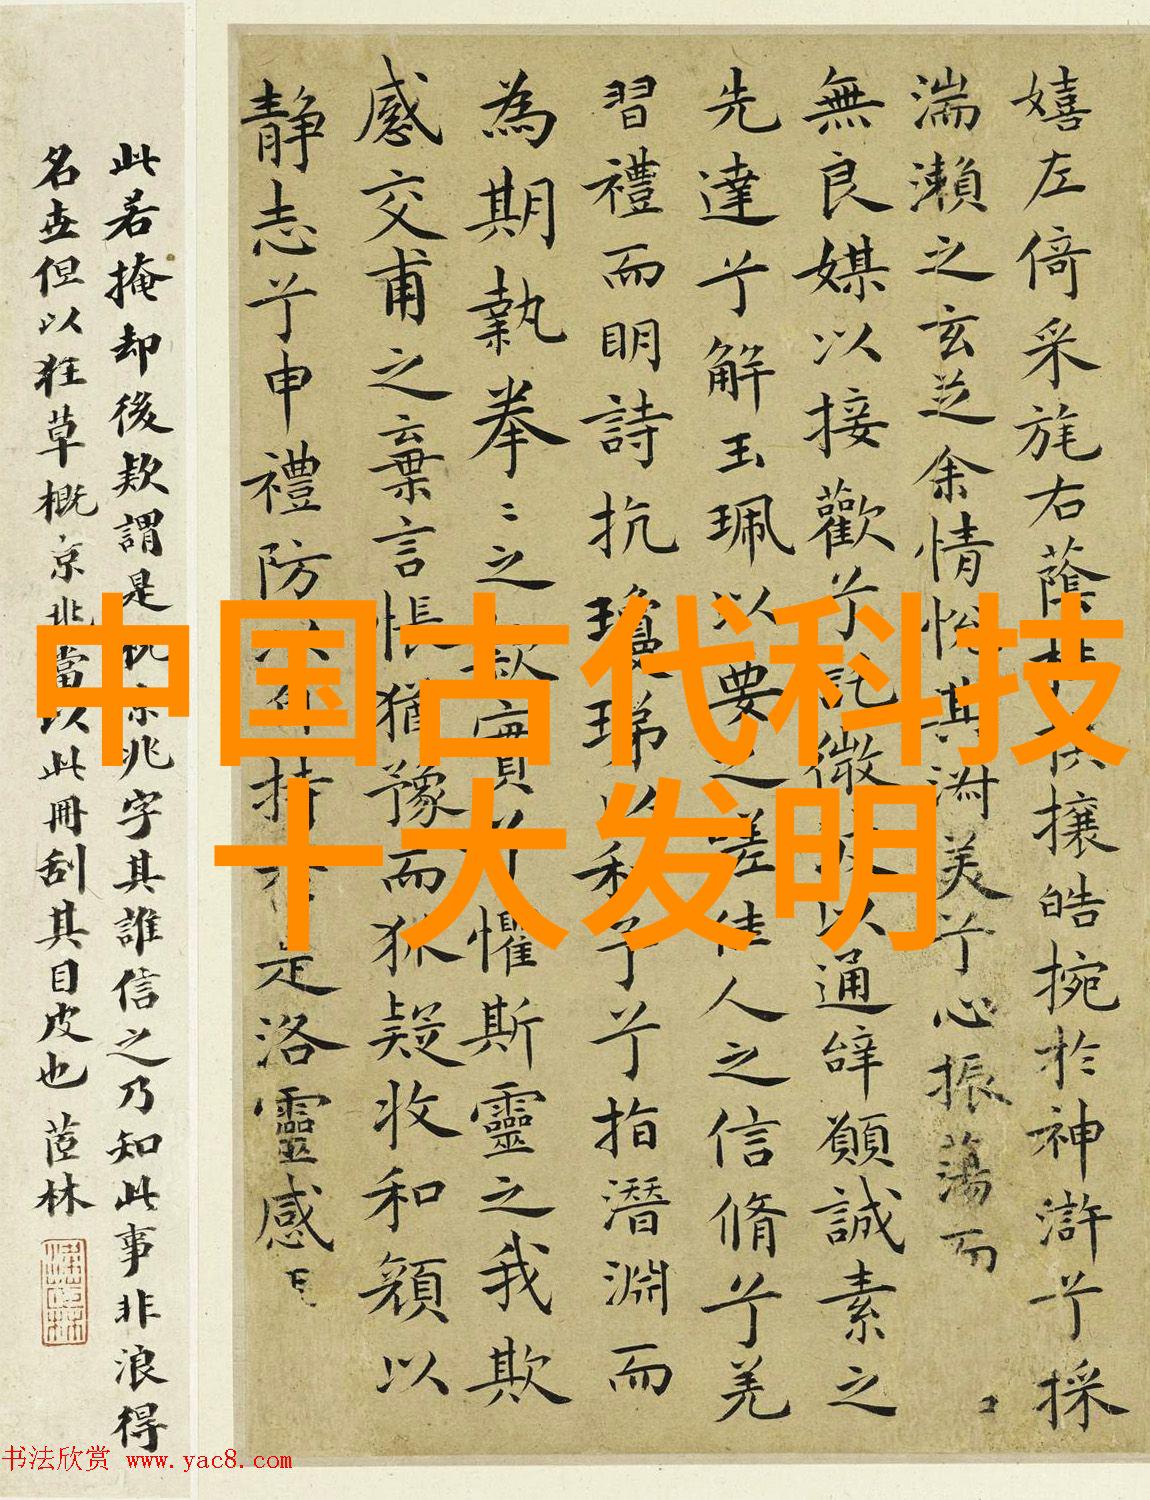 嬉左倚采旄右蔭桂旗攘皓捥於神滸兮採
湍瀨之玄芝余情悅其淑美兮心振蕩而
無良媒以接歡兮託微波以通辞願誠素之
先達兮解玉珮以要之嗟佳人之信脩兮羌
習禮而明詩抗瓊珶以和予兮指潛淵而
為期執拳〻之款實兮懼斯靈之我欺
感交甫之棄言悵猶豫而狐疑收和顔以
静志兮申禮防以自持於是洛靈感
此若掩却後欵謂是杭京兆字其誰信之乃知此事非浪得
名世但以狂草概京兆當以此冊刮其目皮也 茝林
中国古代科技
十大发明
书法欣赏 www.yac8.com